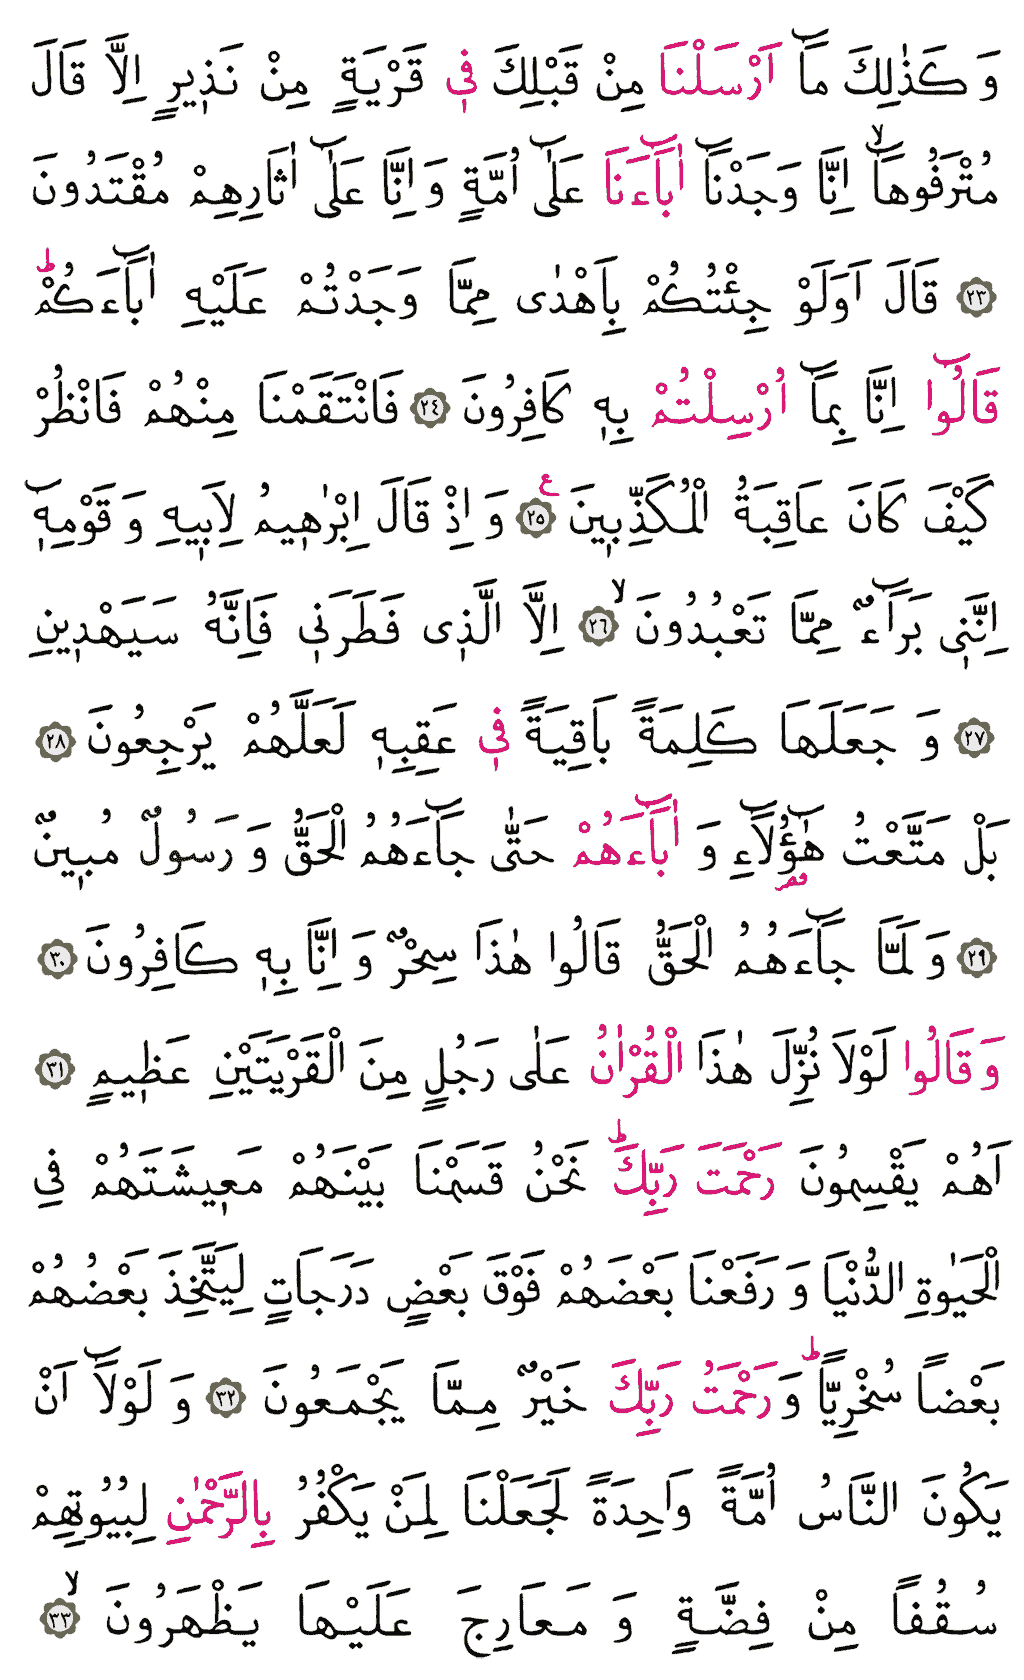 وَ كَذٰلِكَ مَٓا اَرْسَلْنَا مِنْ قَبْلِكَ فٖي قَرْيَةٍ مِنْ نَذٖيرٍ اِلَّا قَالَ
مُتْرَفُوهَٓاۙ اِنَّا وَجَدْنَٓا اٰبَٓاءَنَا عَلٰٓى اُمَّةٍ وَ اِنَّا عَلٰٓى اٰثَارِهِمْ مُقْتَدُونَ
﴿٢٣﴾ قَالَ اَوَلَوْ جِئْتُكُمْ بِاَهْدٰى مِمَّا وَجَدْتُمْ عَلَيْهِ اٰبَٓاءَكُمْؕ
قَالُٓوا اِنَّا بِمَٓا اُرْسِلْتُمْ بِهٖ كَافِرُونَ ﴿٢٤﴾ فَانْتَقَمْنَا مِنْهُمْ فَانْظُرْ
كَيْفَ كَانَ عَاقِبَةُ الْمُكَذِّبٖينَ ﴿٢٥﴾ ع وَ اِذْ قَالَ اِبْرٰهٖيمُ لِاَبٖيهِ وَ قَوْمِهٖٓ
اِنَّنٖي بَرَٓاءٌ مِمَّا تَعْبُدُونَ ﴿٢٦﴾ۙ اِلَّا الَّذٖى فَطَرَنٖي فَاِنَّهُ سَيَهْدٖينِ
﴿٢٧﴾ وَ جَعَلَهَا كَلِمَةً بَاقِيَةً فٖي عَقِبِهٖ لَعَلَّهُمْ يَرْجِعُونَ ﴿٢٨﴾
بَلْ مَتَّعْتُ هٰٓؤُ۬لَٓاءِ وَ اٰبَٓاءَهُمْ حَتّٰى جَٓاءَهُمُ الْحَقُّ وَ رَسُولٌ مُبٖينٌ
﴿٢٩﴾ وَ لَمَّا جَٓاءَهُمُ الْحَقُّ قَالُوا هٰذَا سِحْرٌ وَ اِنَّا بِهٖ كَافِرُونَ ﴿٣٠﴾
وَ قَالُوا لَوْلَا نُزِّلَ هٰذَا الْقُرْاٰنُ عَلٰى رَجُلٍ مِنَ الْقَرْيَتَيْنِ عَظٖيمٍ ﴿٣١﴾
اَهُمْ يَقْسِمُونَ رَحْمَتَ رَبِّكَؕ نَحْنُ قَسَمْنَا بَيْنَهُمْ مَعٖيشَتَهُمْ فِي
الْحَيٰوةِ الدُّنْيَا وَ رَفَعْنَا بَعْضَهُمْ فَوْقَ بَعْضٍ دَرَجَاتٍ لِيَتَّخِذَ بَعْضُهُمْ
بَعْضاً سُخْرِيًّاؕ وَ رَحْمَتُ رَبِّكَ خَيْرٌ مِمَّا يَجْمَعُونَ ﴿٣٢﴾ وَ لَوْلَٓا اَنْ
يَكُونَ النَّاسُ اُمَّةً وَاحِدَةً لَجَعَلْنَا لِمَنْ يَكْفُرُ بِالرَّحْمٰنِ لِبُيُوتِهِمْ
سُقُفاً مِنْ فِضَّةٍ وَ مَعَارِجَ عَلَيْهَا يَظْهَرُونَ ﴿٣٣﴾ۙ